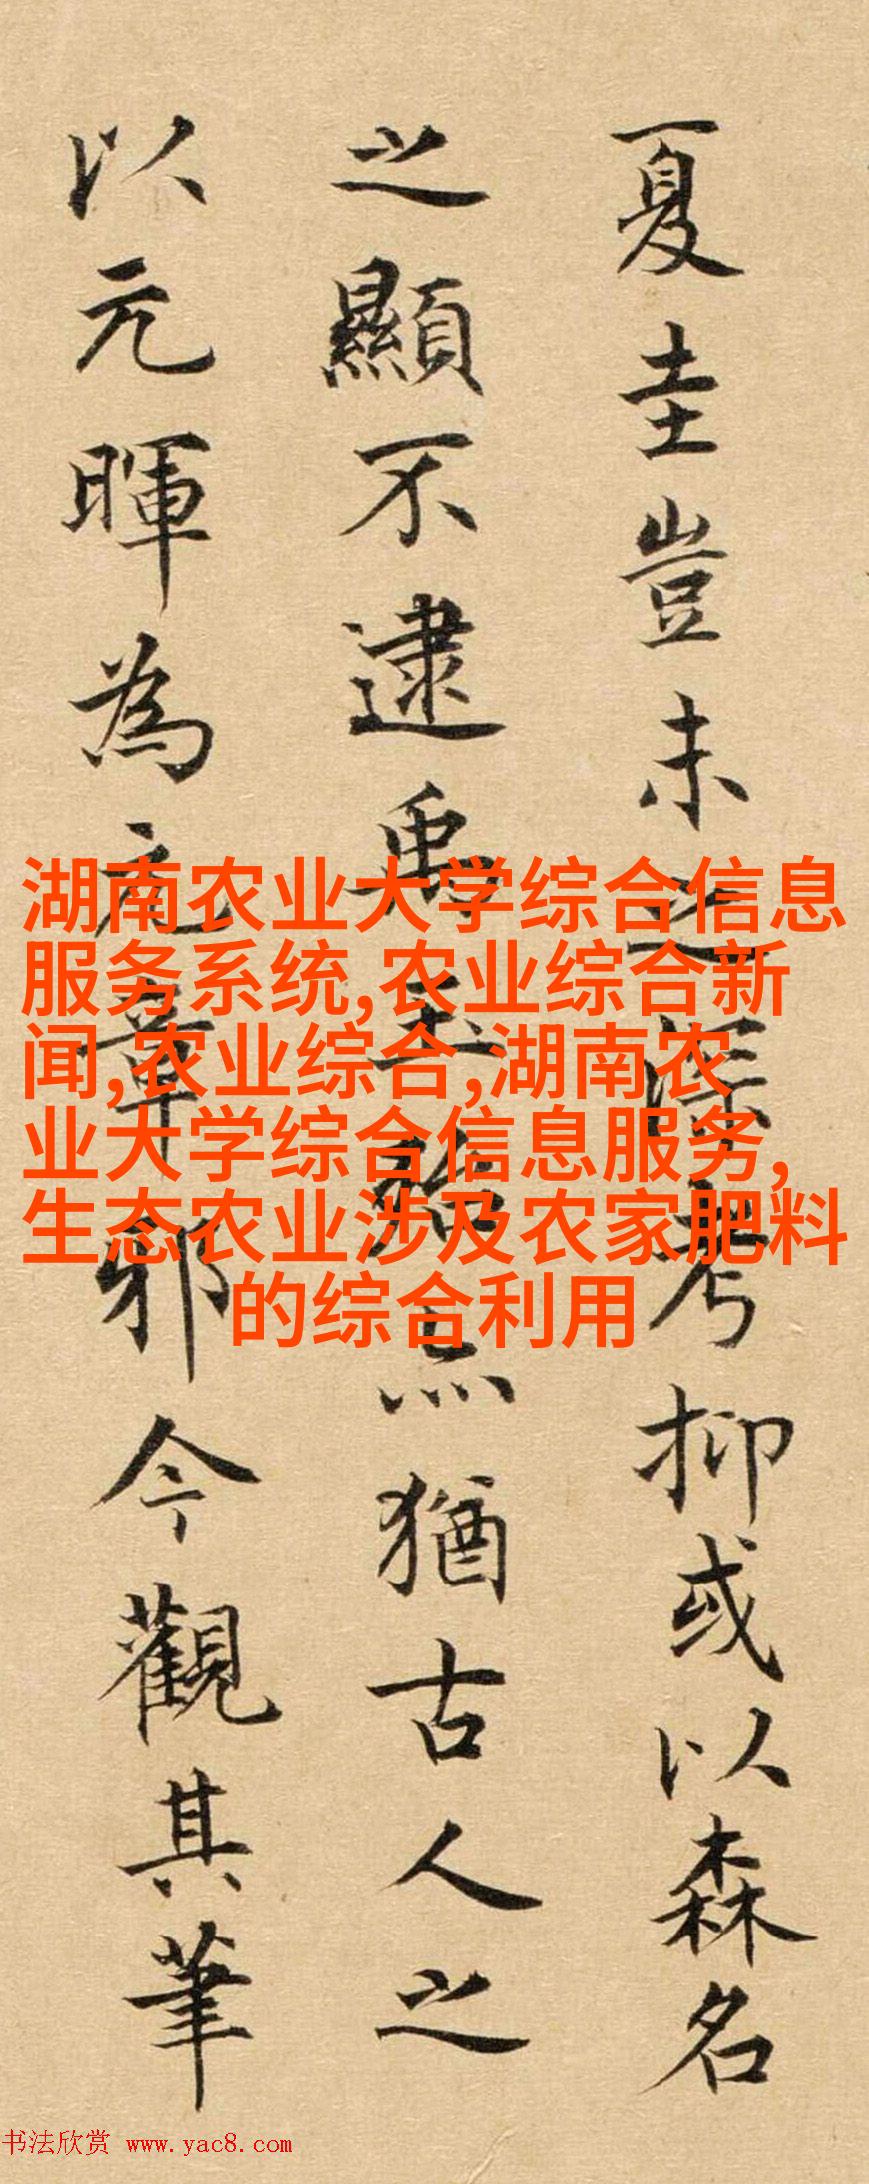 夏圭豈未之深考抑或以森名
之顯不逮禹玉殆亦猶古人之
以元暉為元章邪今觀其筆
湖南农业大学综合信息
服务系统,农业综合新
闻,农业综合,湖南农
业大学综合信息服务,
生态农业涉及农家肥料
的综合利用
书法欣赏 www.yac8.com